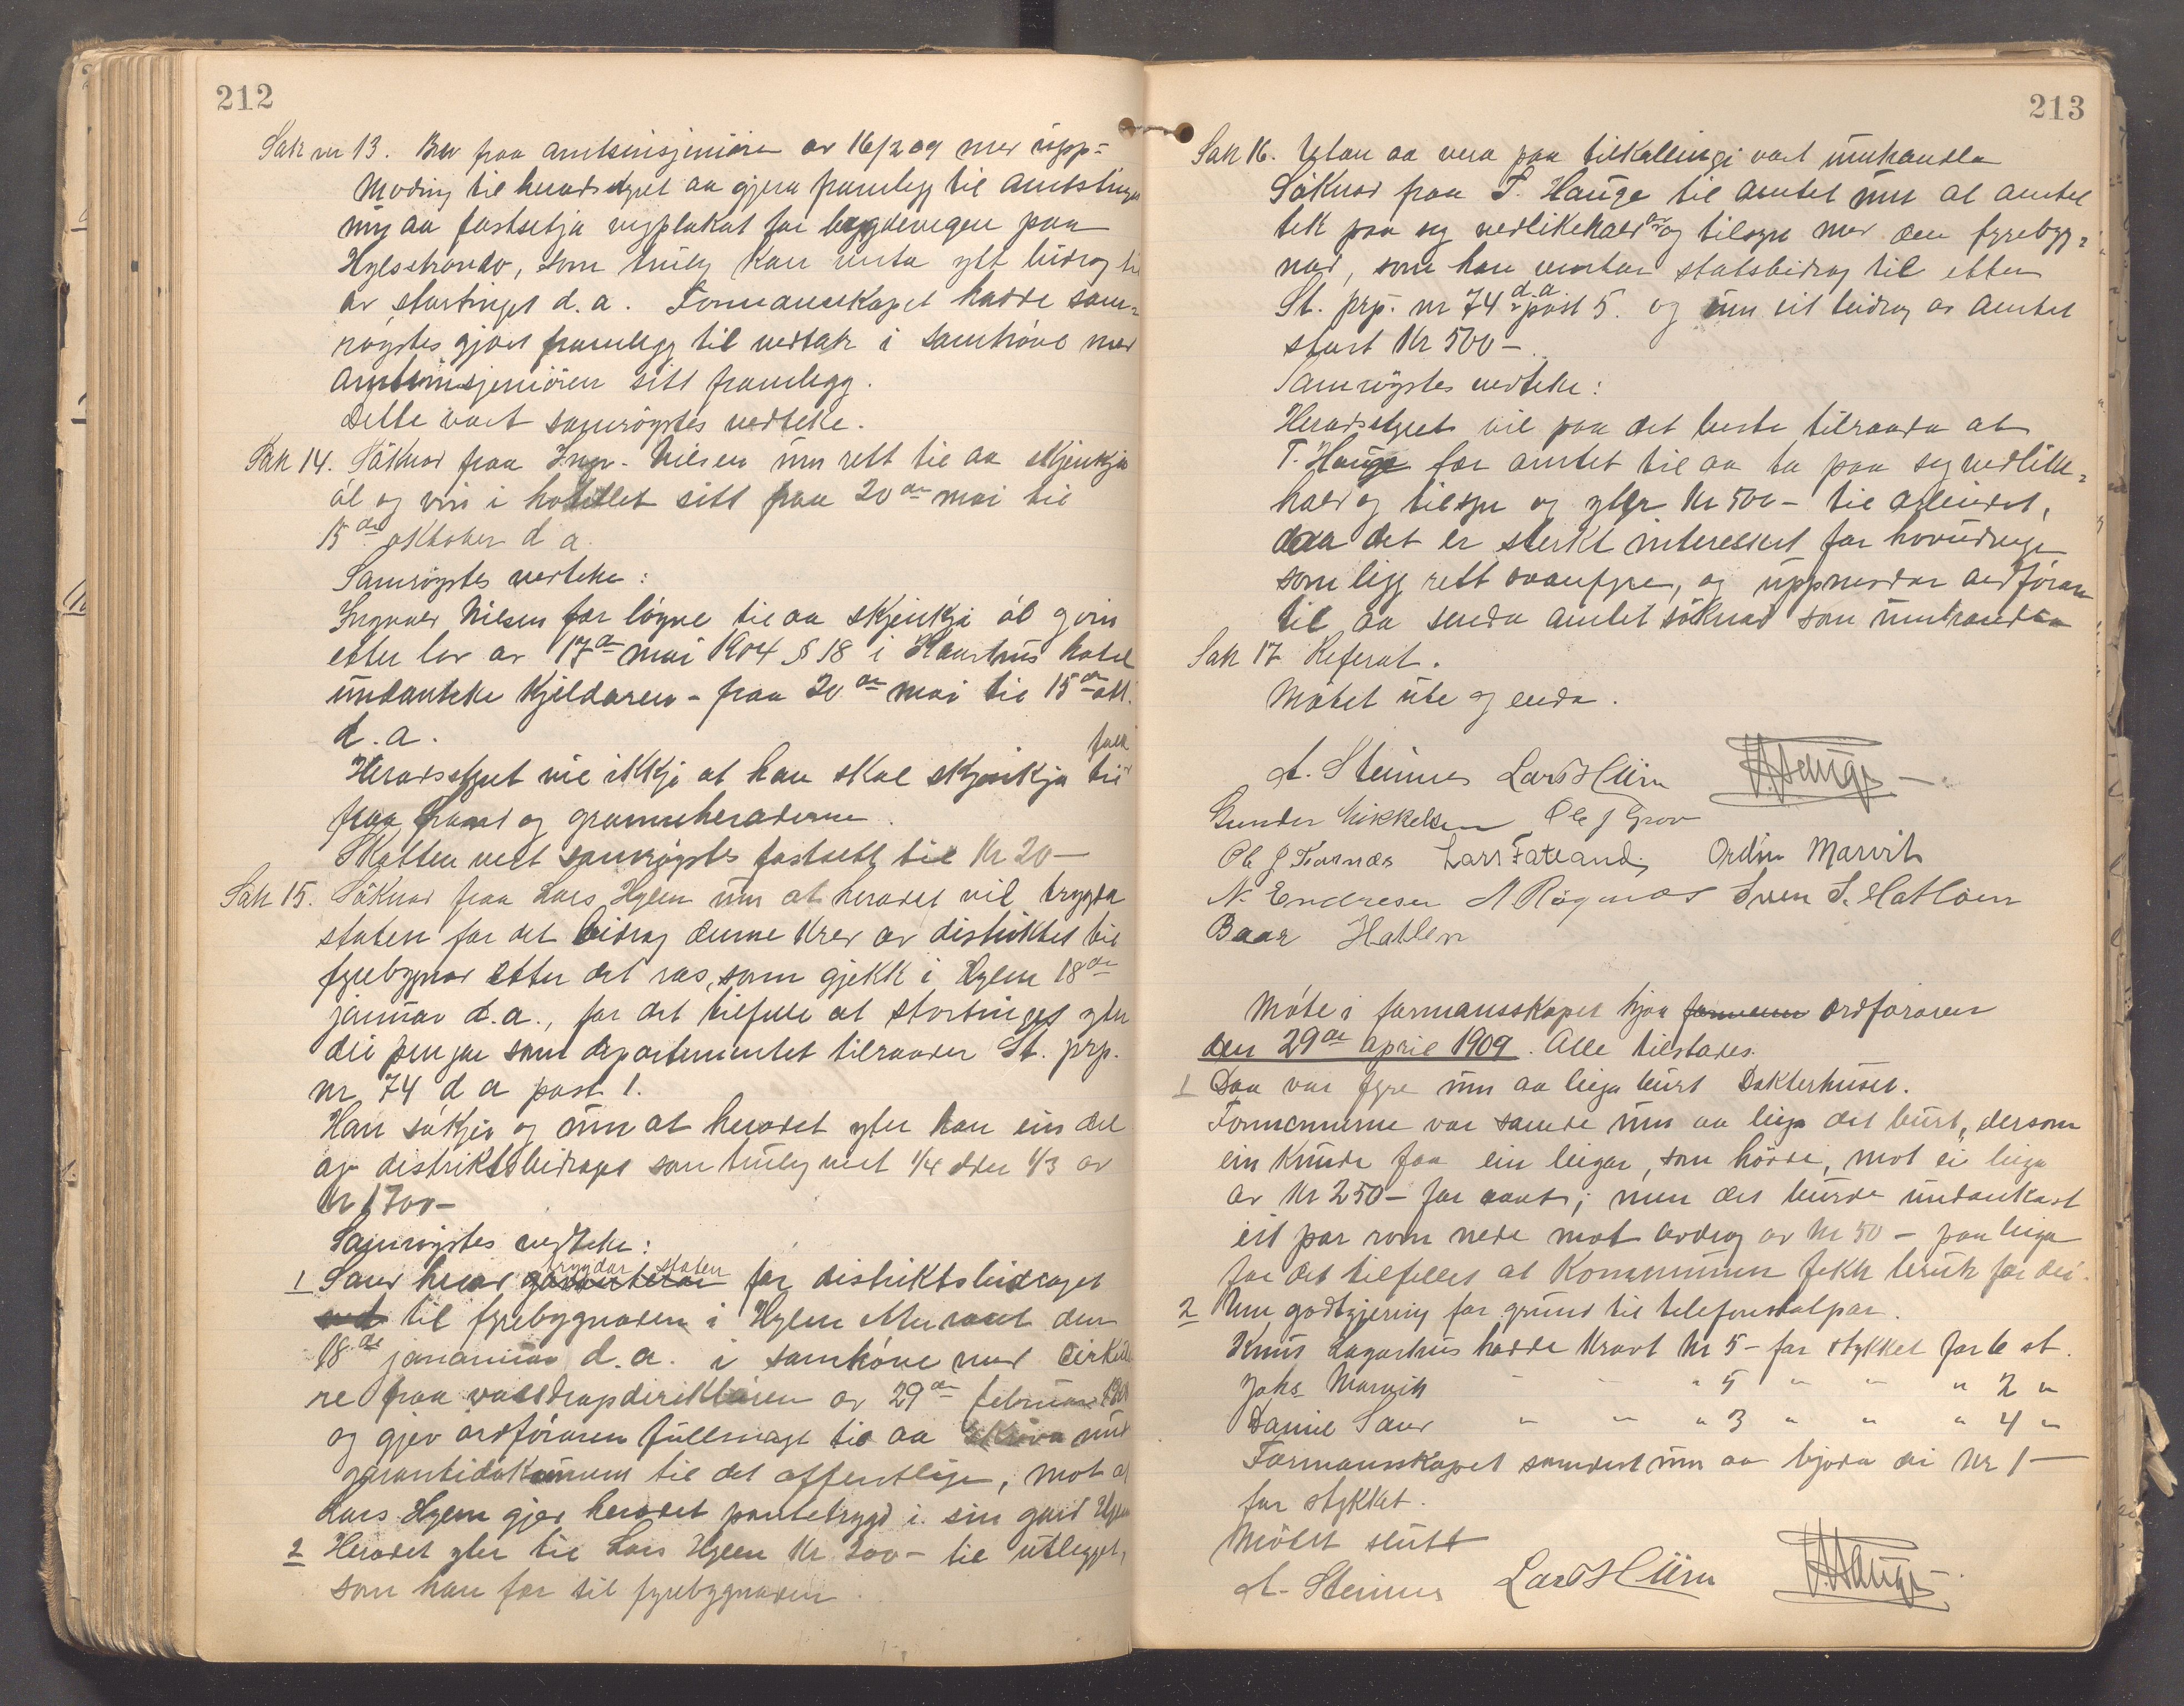 212
Sak nr 13. Brev fraa amtsinsjeniören av 16/2 09 med upp=
moding til heradsstyret aa gjera framlegg til amtstinget
um aa fastsetja vegplakat for bygdevegen paa
Hylsstrondo, som truleg kan venta ytt bidrag til
av stortinget d.a. Formannskapet hadde sam=
röystes gjort framlegg til vedtak i samhöve med
amtsinsjeniören sitt framlegg.
Dette vart samröystes vedteke.
Sak 14. Söknad fraa Ingv. Nilsen um rett til aa skjenkja
öl og vin i hotellet sitt fraa 20de mai til
15de oktober d a.
Samröystes vedteke:
Ingvald Nilsen fær löyve til aa skjenkja öl og vin
etter lov av 17de mai 1904 § 18 i Haarhus hotel
undanteke kjeldaren - fraa 20de mai til 15de okt.
d.a.
Heradsstyret vil ikkje at han skal skjenkja til folk
fraa Sand og grannheraderne.
Skatten vert samröystes fastsett til Kr 20 —
Sak 15. Söknad fraa Lars Hylen um at heradet vil trygda
staten for det bidrag denne krev av distriktet til
fyrebygnad etter det ras, som gjekk i Hylen 18de
januar d.a., for det tilfelle at stortinget yter
dei pengar som departementet tilraader St. prp.
nr 74 d a post 1.
Han sökjer og um at heradet yter han ein del
av distriktsbidraget som truleg vert 1/4 eller 1/3 av
Kr 1700 —
Samröystes vedteke:
1 Saud herad garanterar trygdar staten for distriktsbidraget
ved til fyrebygnaden i Hylen etter raset den
18de januar d.a. i samhöve med cirkulæ
re fraa vassdragsdirektören av 29de februar 1908
og gjev ordföraren fullmagt til aa skriva under
garantidokument til det offentlige, mot at
Lars Hylen gjev heradet pantetrygd i sin gard Hylen
2 Heradet yter til Lars Hylen Kr 200 - til utlegget,
som han fær til fyrebygnaden.
213
Sak 16. Utan aa vera paa tilkallingi vart umhandla
Söknad fraa T. Hauge til amtet um at amtet
tek paa seg vedlikehald av og tilsyn med den fyrebyg=
nad, som han ventar statsbidrag til etter
St. prp. nr 74 d.a. post 5. og um eit bidrag av amtet
stort Kr 500 —.
Samröystes vedteke:
Heradsstyret vil paa det beste tilraada at
T. Hauge fær amtet til aa ta paa seg vedlike=
hald og tilsyn og yter Kr 500 - til arbeidet,
daa det er sterkt interessert for hovudvegen
som ligg rett ovanfyre, og uppmodar ordföraren
til aa senda amtet söknad som umhandla
Sak 17 Referat.
Mötet ute og enda.
A. Steinnes Lars Hiim T. Hauge
Gunder Mikkelsen Ole J Grov
Ole J Tvarnes Lars Fatland Ordin Marvik
N. Endresen N Rögnas Sven S. Hatloen
Baar Hatlen
Möte i formannsskapet hjaa formann ordföraren
den 29de april 1909. Alle tilstades.
1 Daa var fyre um aa leiga burt Dokterhuset.
Formennerne var samde um aa leiga det burt, dersom
ein kunde faa ein leigar, som hövde, mot ei leiga
av Kr 250 - for aaret; men det burde undantakast
eit par rom nede mot avdrag av Kr 50 - paa leiga
for det tilfellet at Kommunen fekk bruk for dei.
2 Um godtgjering for grunn til telefonstolpar.
Knut Lagarhus hadde kravt Kr 5 - for stykket for 6 st.
Johs Marvik " " " 5 " " " 2 "
Daniel Saur " " " 3 " " " 4 "
Formannsskapet samdest um aa bjoda dei Kr 1 —
for stykket.
Mötet slutt
A. Steinnes Lars Hiim T. Hauge